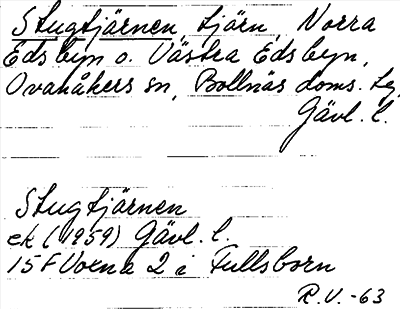 Stugtjärnen, tjärn, Norra
Edsbyn o. Västra Edsbyn,
Ovanåkers sn, Bollnäs doms. tg,
Gävl. l.
Stugtjärnen
ek (1959) Gävl. l.
15 F Voxna 2 i Fullsborn
R.V. -63